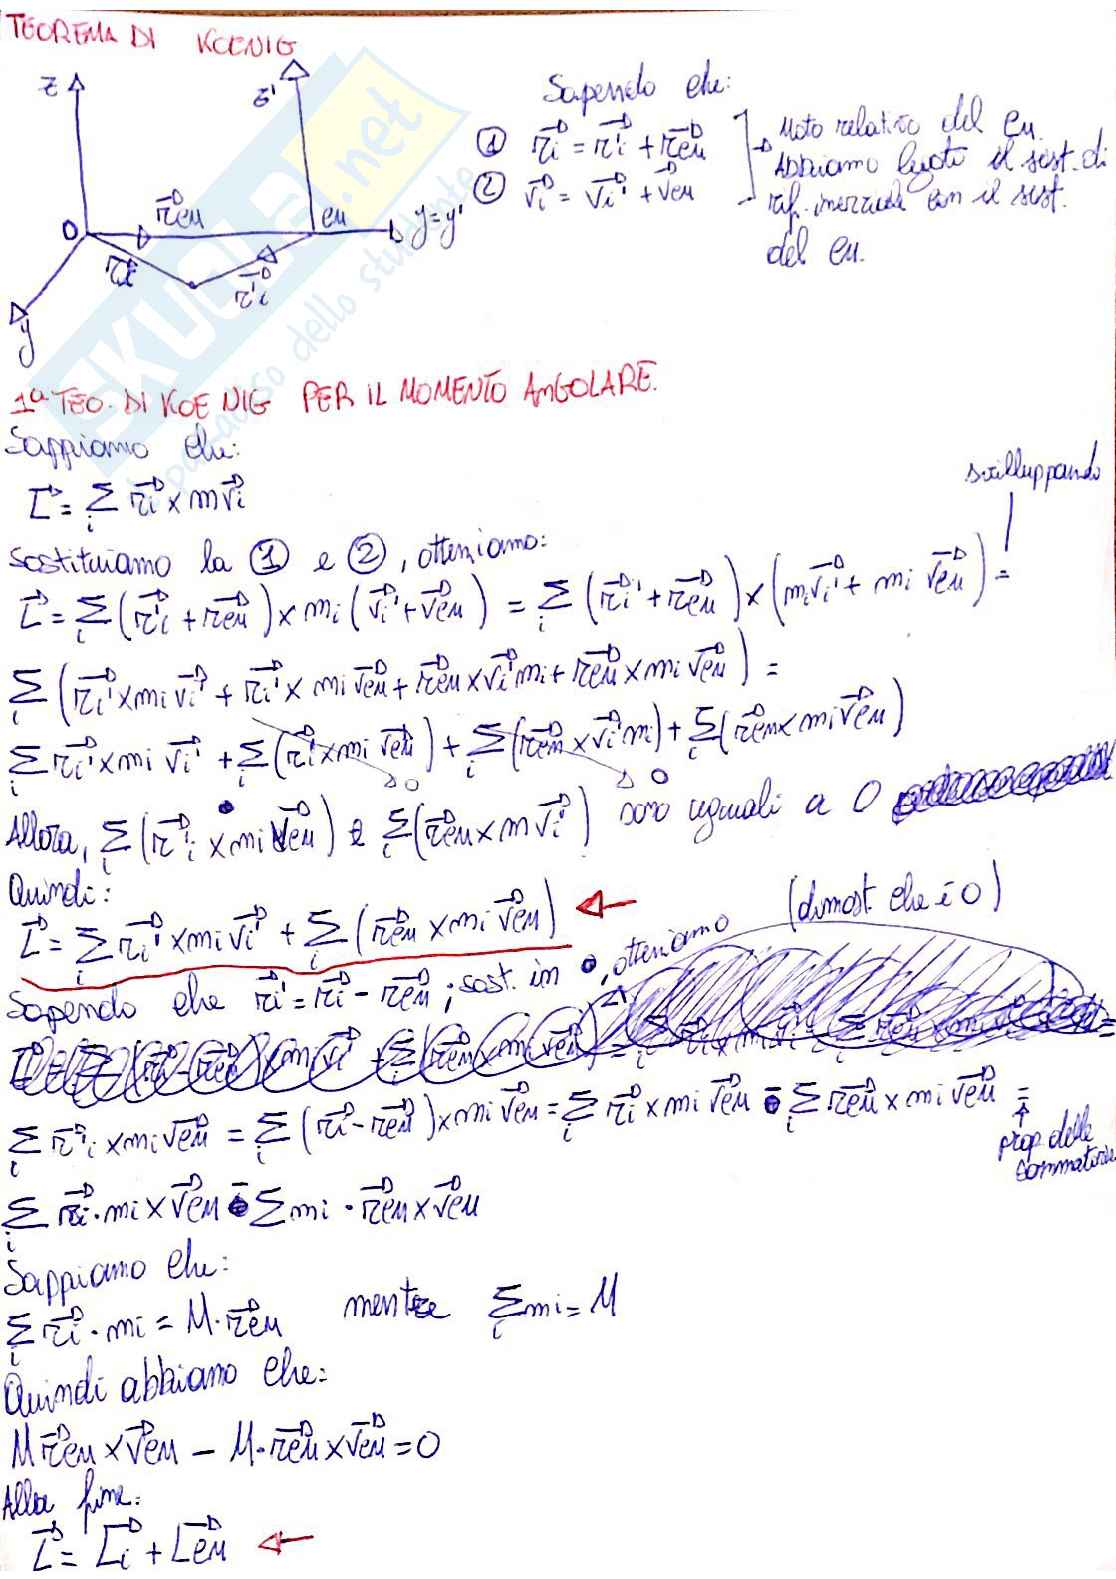 TEOREMA DI KOENIG
z
z'
O
r⃗cm
cm
y=y'
r⃗i
r⃗'i
y
Sapendo che:
① r⃗i = r⃗'i + r⃗cm
② v⃗i = v⃗i' + v⃗cm
Moto relativo del cm.
Abbiamo legato il sist. di
rif. inerziale con il sist.
del cm.
SKUOLA.net
il paradiso dello studente
1ª TEO. DI KOENIG PER IL MOMENTO ANGOLARE.
Sappiamo che:
L⃗ = Σi r⃗i × m v⃗i
sviluppando
Sostituiamo la ① e ②, otteniamo:
L⃗ = Σi (r⃗'i + r⃗cm) × mi (v⃗i' + v⃗cm) = Σi (r⃗i' + r⃗cm) × (mi v⃗i' + mi v⃗cm) =
Σi (r⃗i' × mi v⃗i' + r⃗i' × mi v⃗cm + r⃗cm × v⃗i' mi + r⃗cm × mi v⃗cm) =
Σi r⃗i' × mi v⃗i' + Σi (r⃗i' × mi v⃗cm) + Σi (r⃗cm × v⃗i' mi) + Σi (r⃗cm × mi v⃗cm)
0 0
Allora, Σi (r⃗'i × mi v⃗cm) e Σi (r⃗cm × m v⃗i') sono uguali a 0
Quindi:
L⃗ = Σi r⃗i' × mi v⃗i' + Σi (r⃗cm × mi v⃗cm)
(dimost. che è 0)
Sapendo che r⃗i' = r⃗i - r⃗cm ; sost. in •, otteniamo
Σi r⃗'i × mi v⃗cm = Σi (r⃗i - r⃗cm) × mi v⃗cm = Σi r⃗i × mi v⃗cm - Σi r⃗cm × mi v⃗cm =
prop. delle
sommatorie
Σi r⃗i · mi × v⃗cm - Σ mi · r⃗cm × v⃗cm
Sappiamo che:
Σi r⃗i · mi = M · r⃗cm mentre Σi mi = M
Quindi abbiamo che:
M r⃗cm × v⃗cm - M · r⃗cm × v⃗cm = 0
Alla fine:
L⃗ = L⃗i + L⃗cm